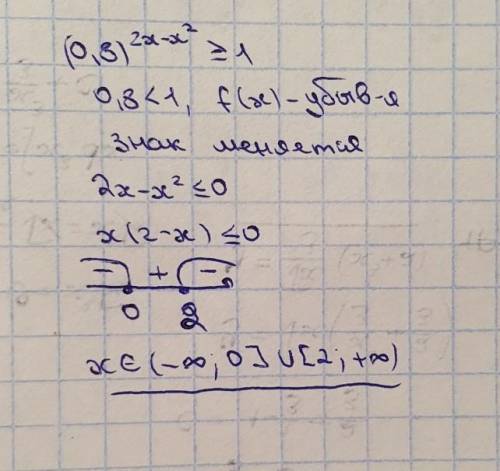 (0,8)^{2x-x^2} ≥ 1
0,8 < 1, f(x) - убыв-я
Знак меняется
2x-x² ≤ 0
x(2-x) ≤ 0
- + -
0 2
x ∈ (-∞; 0] ∪ [2; +∞)